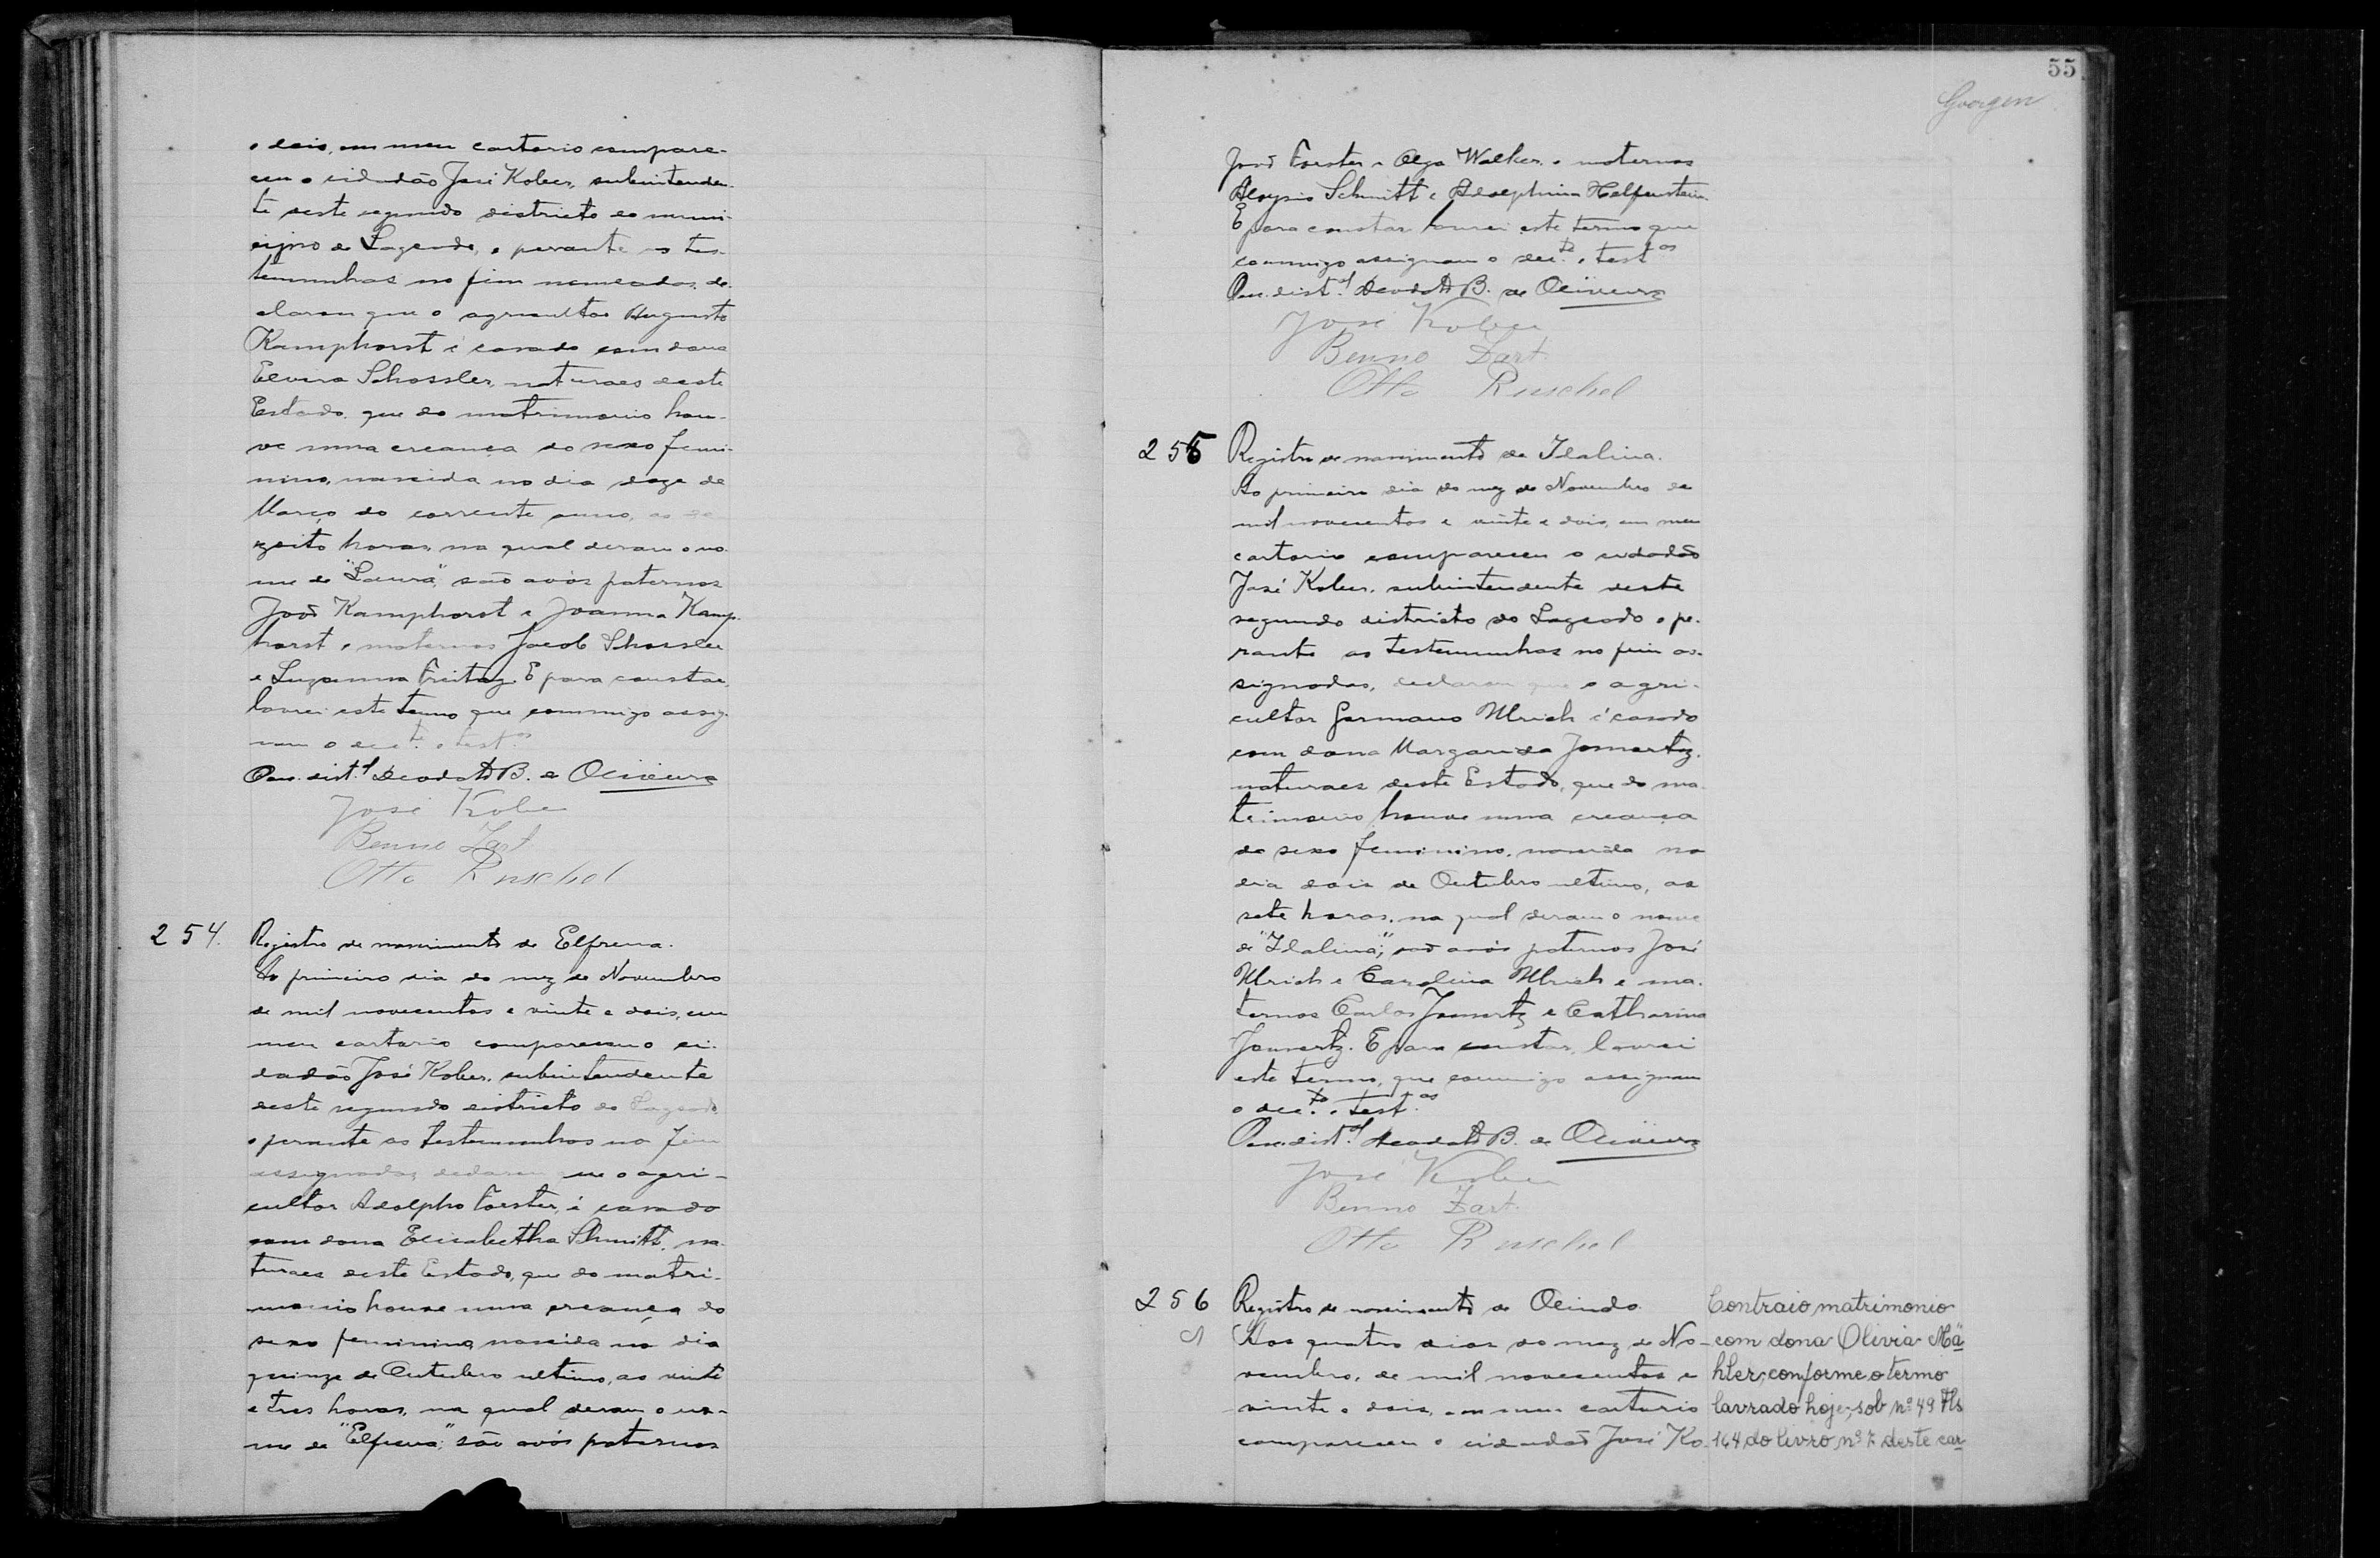 e dois, em meu cartorio compare-
ceu o cidadão José Kober, subintenden-
te deste segundo districto do muni-
cipio de Lageado, e perante as tes-
temunhas no fim nomeadas, de-
clarou que o agricultor Augusto
Kamphorst é casado com dona
Elvira Schossler, naturaes deste
Estado, que do matrimonio hou-
ve uma creança do sexo femi-
nino, nascida no dia doze de
Março do corrente anno, as de-
zoito horas, na qual deram o no-
me de "Laura", são avós paternos
João Kamphorst e Joanna Kamp-
horst e maternos Jacob Schossler
e Suzanna Freitag. E para constar,
lavrei este termo que commigo assig-
nam o dec.te e test.as
Deodato B. de Oliveira
José Kober
Benno Zart
Otto Ruschel
254. Registro de nascimento de Elfrena.
Ao primeiro dia do mez de Novembro
de mil novecentos e vinte e dois, em
meu cartorio compareceu o ci-
dadão José Kober, subintendente
deste segundo districto do Lageado
e perante as testemunhas no fim
assignadas, declarou que o agri-
cultor Adolpho Foester, é casado
com dona Elisabetha Schmitt, na-
turaes deste Estado, que do matri-
monio houve uma creança do
sexo feminino, nascida no dia
quinze de Outubro ultimo, as vinte
e tres horas, na qual deram o no-
me de "Elfrena"; são avós paternos
55
Goergen
João Foester e Olga Walker e maternos
Aloysio Schmitt e Adolphina Helfenstein.
E para constar, lavrei este termo que
commigo assignam o dec.te e test.as
Deodato B. de Oliveira
José Kober
Benno Zart
Otto Ruschel
255 Registro de nascimento de Idalina.
Ao primeiro dia do mez de Novembro de
mil novecentos e vinte e dois, em meu
cartorio compareceu o cidadão
José Kober, subintendente deste
segundo districto do Lageado e pe-
rante as testemunhas no fim as-
signadas, declarou que o agri-
cultor Germano Ulrich é casado
com dona Margarida Jomertz,
naturaes deste Estado, que do ma-
trimonio houve uma creança
do sexo feminino, nascida no
dia dois de Outubro ultimo, as
sete horas, na qual deram o nome
de "Idalina"; são avós paternos José
Ulrich e Carolina Ulrich e ma-
ternos Carlos Jomertz e Catharina
Jomertz. E para constar, lavrei
este termo, que commigo assignam
o dec.te e test.as
Deodato B. de Oliveira
José Kober
Benno Zart.
Otto Ruschel
256 Registro de nascimento de Olindo.
Aos quatro dias do mez de No-
vembro, de mil novecentos e
vinte e dois, em meu cartorio
compareceu o cidadão José Ko-
Contraio matrimonio
com dona Olivia Mä
hler, conforme o termo
lavrado hoje, sob nº 49 fls
164 do livro nº 7 deste car